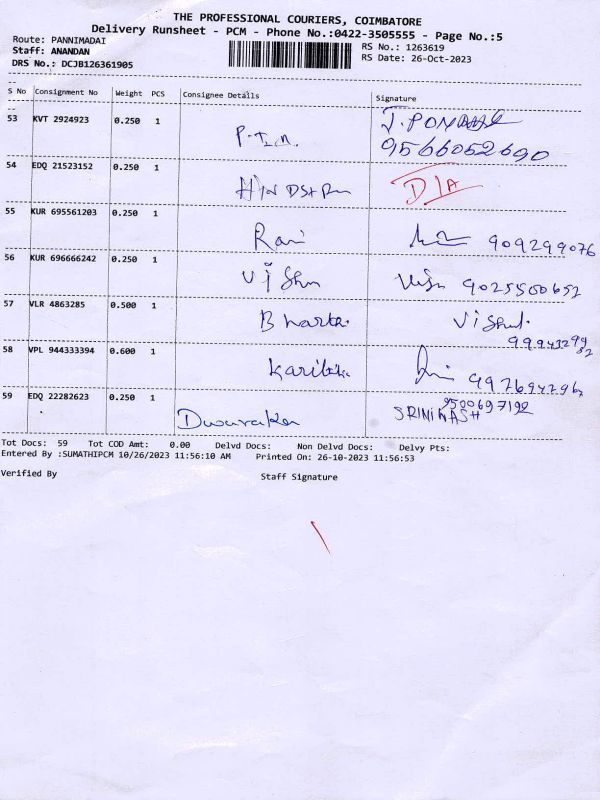 THE PROFESSIONAL COURIERS, COIMBATORE
Delivery Runsheet - PCM - Phone No.:0422-3505555 - Page No.:5
Route: PANNIMADAI
RS No.: 1263619
Staff: ANANDAN
RS Date: 26-Oct-2023
DRS No.: DCJB126361905
S No Consignment No Weight PCS Consignee Details Signature
53 KVT 2924923 0.250 1
9566052690
54 EDQ 21523152 0.250 1
55 KUR 695561203 0.250 1 Ravi 909299076
56 KUR 696666242 0.250 1 Vishnu 9025500652
57 VLR 4863285 0.500 1 Bharath
58 VPL 944333394 0.600 1 Karthik
59 EDQ 22282623 0.250 1 Dwaraka 9500697192
Tot Docs: 59 Tot COD Amt: 0.00 Delvd Docs: Non Delvd Docs: Delvy Pts:
Entered By :SUMATHIPCM 10/26/2023 11:56:10 AM Printed On: 26-10-2023 11:56:53
Verified By Staff Signature